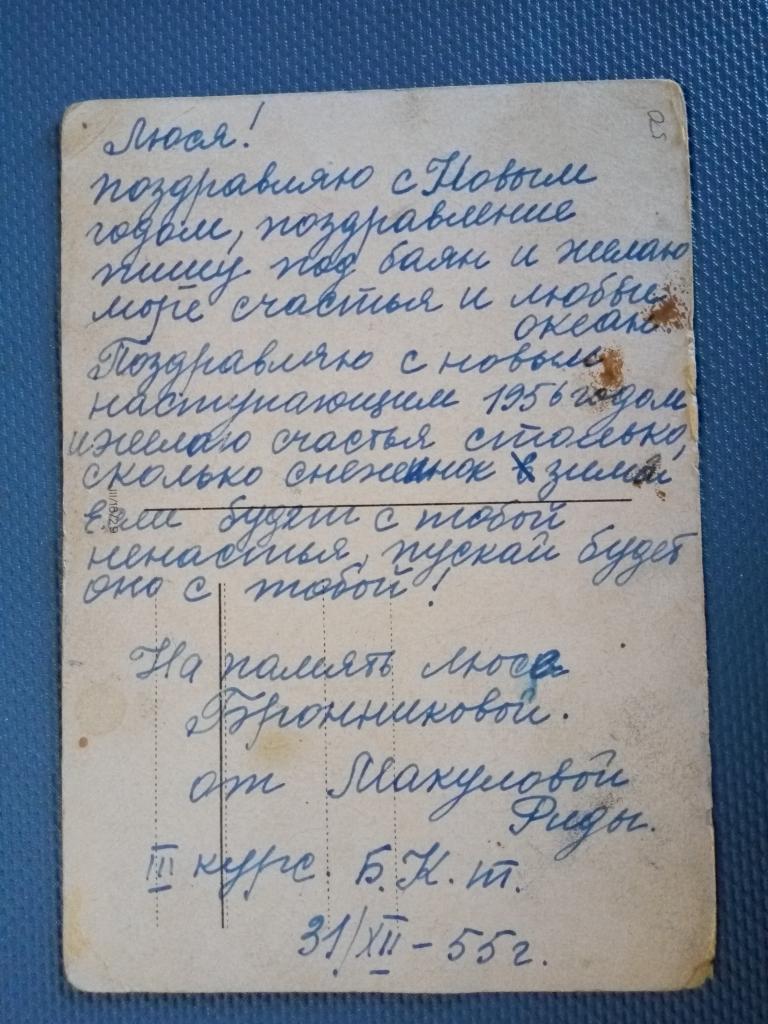 Люся!
поздравляю с Новым
годом, поздравление
пишу под баян и желаю
море счастья и любви
океан
Поздравляю с новым
наступающим 1956 годом
и желаю счастья столько,
сколько снежинок в зимой
если будет с тобой
ненастья, пускай будет
оно с тобой!
На память люсе
Бронниковой.
от Макуловой
Риды.
III курс Б.К.т.
31/XII-55г.